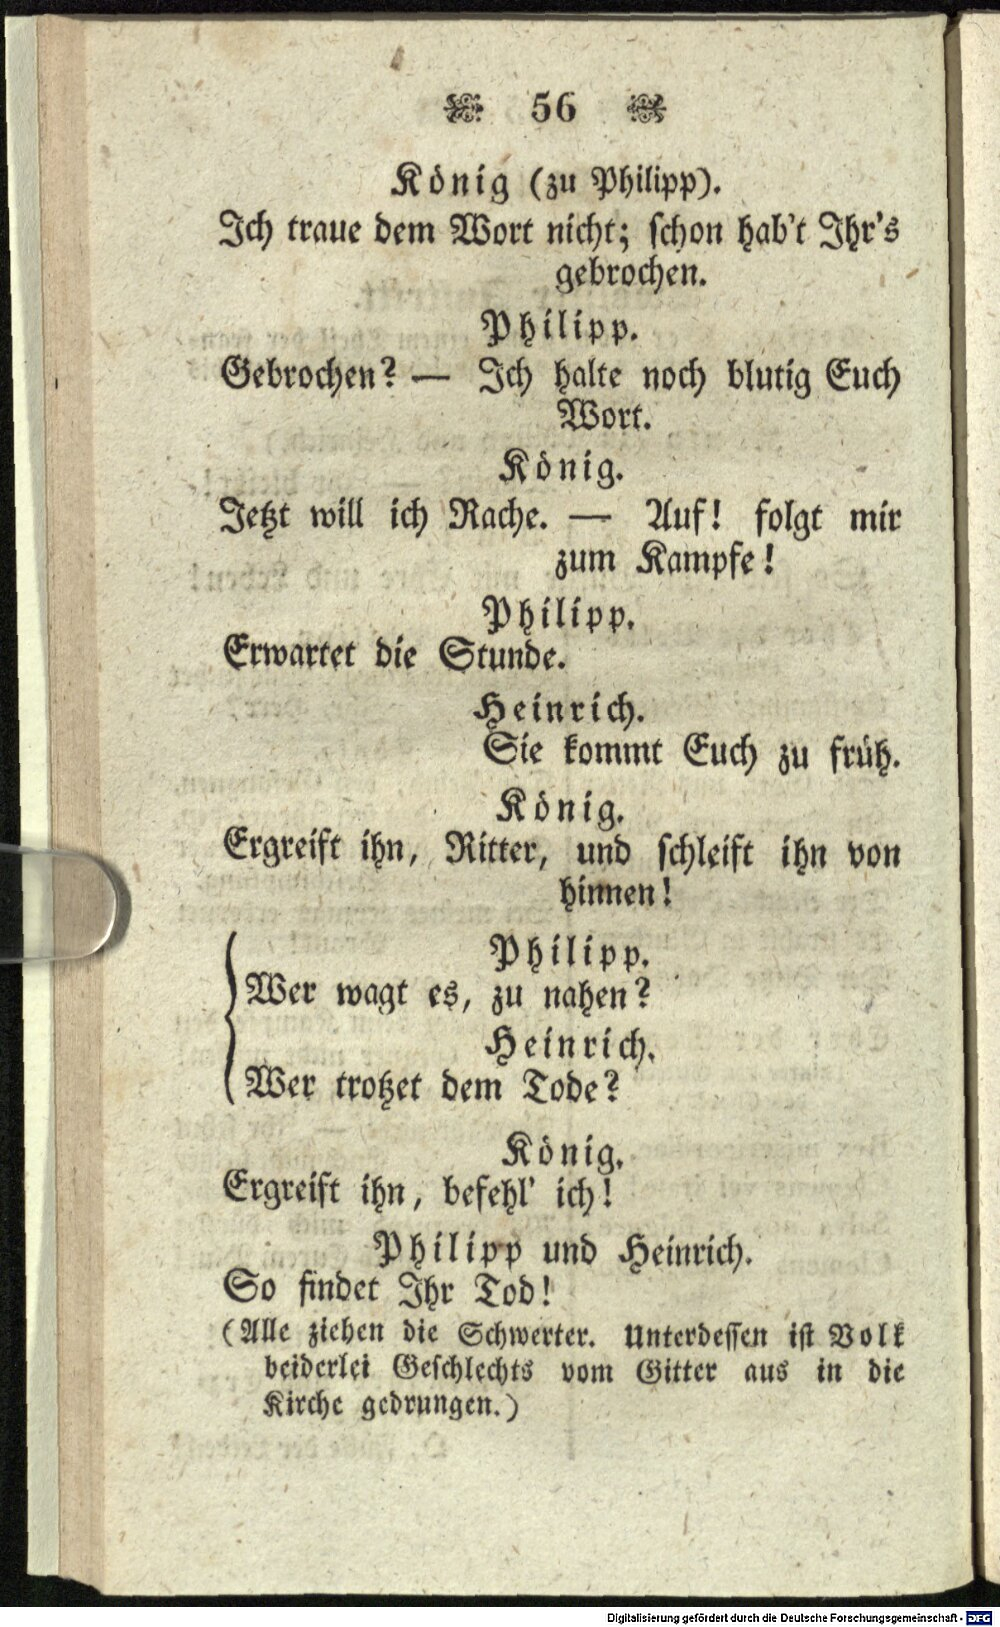 56
König (zu Philipp).
Ich traue dem Wort nicht; schon hab't Ihr's
gebrochen.
Philipp.
Gebrochen? — Ich halte noch blutig Euch
Wort.
König.
Jetzt will ich Rache. — Auf! folgt mir
zum Kampfe!
Philipp.
Erwartet die Stunde.
Heinrich.
Sie kommt Euch zu früh.
König.
Ergreift ihn, Ritter, und schleift ihn von
hinnen!
Philipp.
Wer wagt es, zu nahen?
Heinrich.
Wer trotzet dem Tode?
König.
Ergreift ihn, befehl' ich!
Philipp und Heinrich.
So findet Ihr Tod!
(Alle ziehen die Schwerter. Unterdessen ist Volk
beiderlei Geschlechts vom Gitter aus in die
Kirche gedrungen.)
Digitalisierung gefördert durch die Deutsche Forschungsgemeinschaft - DFG